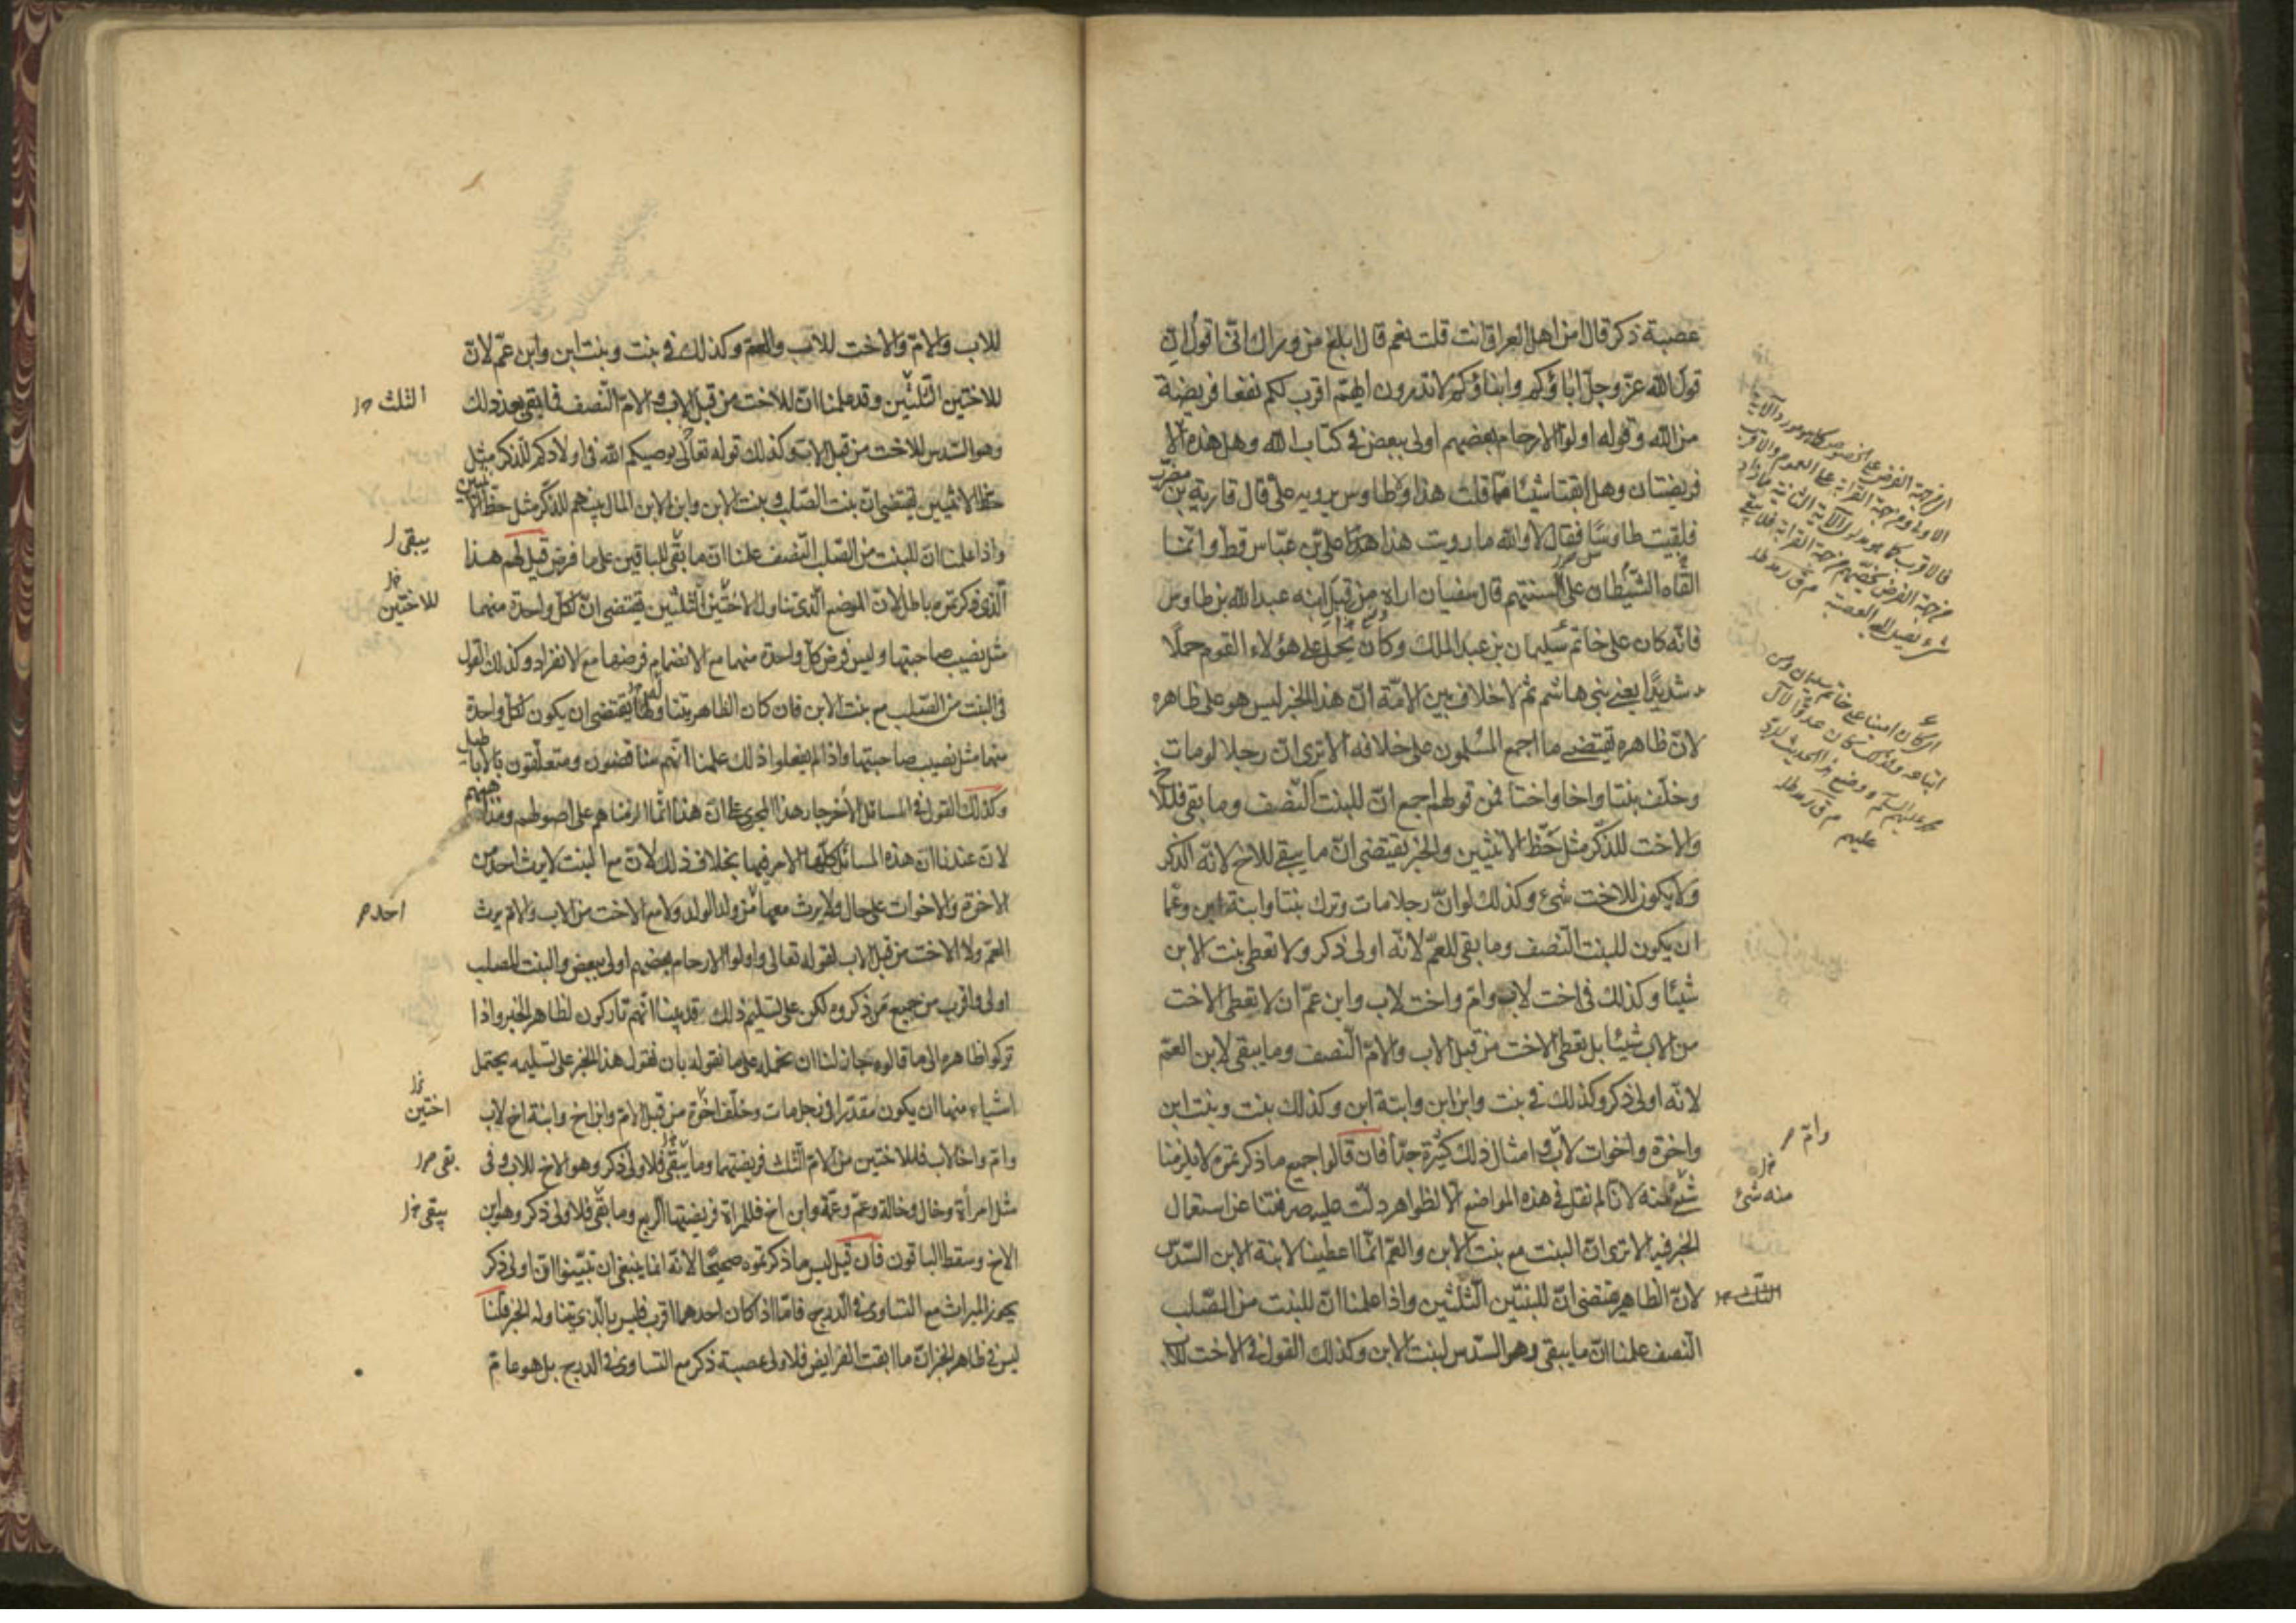 عصبة ذكر قال امن اهل العراق انت قلت نعم قال ابلغ من وراك انى اقول ان
قول الله عز وجل اباؤكم وابناؤكم لا تدرون ايهم اقرب لكم نفعا فريضة
من الله وقوله اولوا الارحام بعضهم اولى ببعض فى كتاب الله وهل هذه الا
فريضتان وهل ابقتا شيئا ما قلت هذا ولا طاوس يرويه على قال قارية بن مضرب
فلقيت طاوسا فقال لا والله ما رويت هذا على بن عباس قط وانما
القاه الشيطان على السنتهم قال سفيان اراه من قبل ابنه عبد الله بن طاوس
فانه كان على خاتم سليمان بن عبد الملك وكان يحمل على هؤلاء القوم حملا
شديدا يعنى بنى هاشم ثم لا خلاف بين الامة ان هذا الخبر ليس هو على ظاهره
لان ظاهره يقتضى ما اجمع المسلمون على خلافه الا ترى ان رجلا لو مات
وخلف بنتا واخا واختا فمن قولهم اجمع ان للبنت النصف وما بقى فللاخ
والاخت للذكر مثل حظ الانثيين والخبر يقتضى ان ما يبقى للاخ لانه الذكر
ولا يكون للاخت شئ وكذلك لو ان رجلا مات وترك بنتا وابنة ابن وعما
ان يكون للبنت النصف وما بقى للعم لانه اولى ذكر ولا تعطى بنت الابن
شيئا وكذلك فى اخت لاب وام واخت لاب وابن عم ان لا تعطى الاخت
من الاب شيئا بل تعطى الاخت من قبل الاب والام النصف وما يبقى لابن العم
لانه اولى ذكر وكذلك فى بنت وابن ابن وابنة ابن وكذلك بنت وبنت ابن
واخوة واخوات لاب وامثال ذلك كثيرة جدا فان قالوا جميع ما ذكرتموه لا يلزمنا
شئ منه لانا لم نقل فى هذه المواضع الا لظواهر دلت عليه صرفتنا عن استعمال
الخبر فيه الا ترى ان البنت مع بنت الابن والعم انما اعطينا لابنة الابن السدس
لان الظاهر يقتضى ان للبنتين الثلثين واذا علمنا ان للبنت من الصلب
النصف علمنا ان ما يبقى وهو السدس لبنت الابن وكذلك القول فى الاخت للاب
وام
منه شئ
للاب والام والاخت للاب والعم وكذلك فى بنت وبنت ابن وابن عم لان
للاختين الثلثين وقد علمنا ان للاخت من قبل الاب والام النصف فما بقى بعد ذلك
وهو السدس للاخت من قبل الاب وكذلك قوله تعالى يوصيكم الله فى اولادكم للذكر مثل
حظ الانثيين يقتضى ان بنت الصلب وبنت الابن وابن الابن المال بينهم للذكر مثل حظ الانثيين
واذا علمنا ان للبنت من الصلب النصف علمنا ان ما بقى للباقين على ما فرض قيل لهم هذا
الذى ذكرتموه باطل لان الموضع الذى تناول الاختين الثلثين يقتضى ان لكل واحدة منهما
مثل نصيب صاحبتها وليس فرض كل واحدة منهما مع الانضمام فرضها مع الانفراد وكذلك القول
فى البنت من الصلب مع بنت الابن فان كان الظاهر يقتضى ان يكون لكل واحدة
منهما مثل نصيب صاحبتها واذا لم يفعلوا ذلك علمنا انهم مناقضون ومتعلقون بالاباطيل
وكذلك القول فى المسائل الاخر جار هذا المجرى على ان هذا انما الزمناهم على اصولهم
لان عندنا ان هذه المسائل كلها الامر فيها بخلاف ذلك لان مع البنت لا يرث احد من
الاخوة والاخوات على حال ولا يرث معها من ولد الولد ولا مع الاخت من الاب والام يرث
العم ولا الاخت من قبل الاب لقوله تعالى واولوا الارحام بعضهم اولى ببعض والبنت للصلب
اولى واقرب من جميع من ذكروه لكن على تسليم ذلك قد بينا انهم تاركون لظاهر الخبر واذا
تركوا ظاهره الى ما قالوه جاز لنا ان نحمله على ما نقوله بان نقول هذا الخبر على تسليمه يحتمل
اشياء منها ان يكون مقدرا فى رجل مات وخلف اخوة من قبل الام وابن اخ وابنة اخ لاب
وام واخا لاب فللاختين من الام الثلث فريضتهما وما يبقى فلاولى ذكر وهو الاخ للاب وفى
مثل امرأة وخال وخالة وعم وعمة وابن اخ فللمراة فريضتها الربع وما بقى فلاولى ذكر وهو ابن
الاخ وسقط الباقون فان قيل ليس ما ذكرتموه صحيحا لانه انما ينبغى ان تبينوا ان اولى ذكر
يحوز الميراث مع التساوى فى الدرج فاما اذا كان احدهما اقرب فليس بالذى يتناوله الخبر قلنا
ليس فى ظاهر الخبر ان ما ابقت الفرايض فلاولى عصبة ذكر مع التساوى فى الدرج بل هو عام
الثلث
يبقى
للاختين
احد
اختين
بقى
يبقى